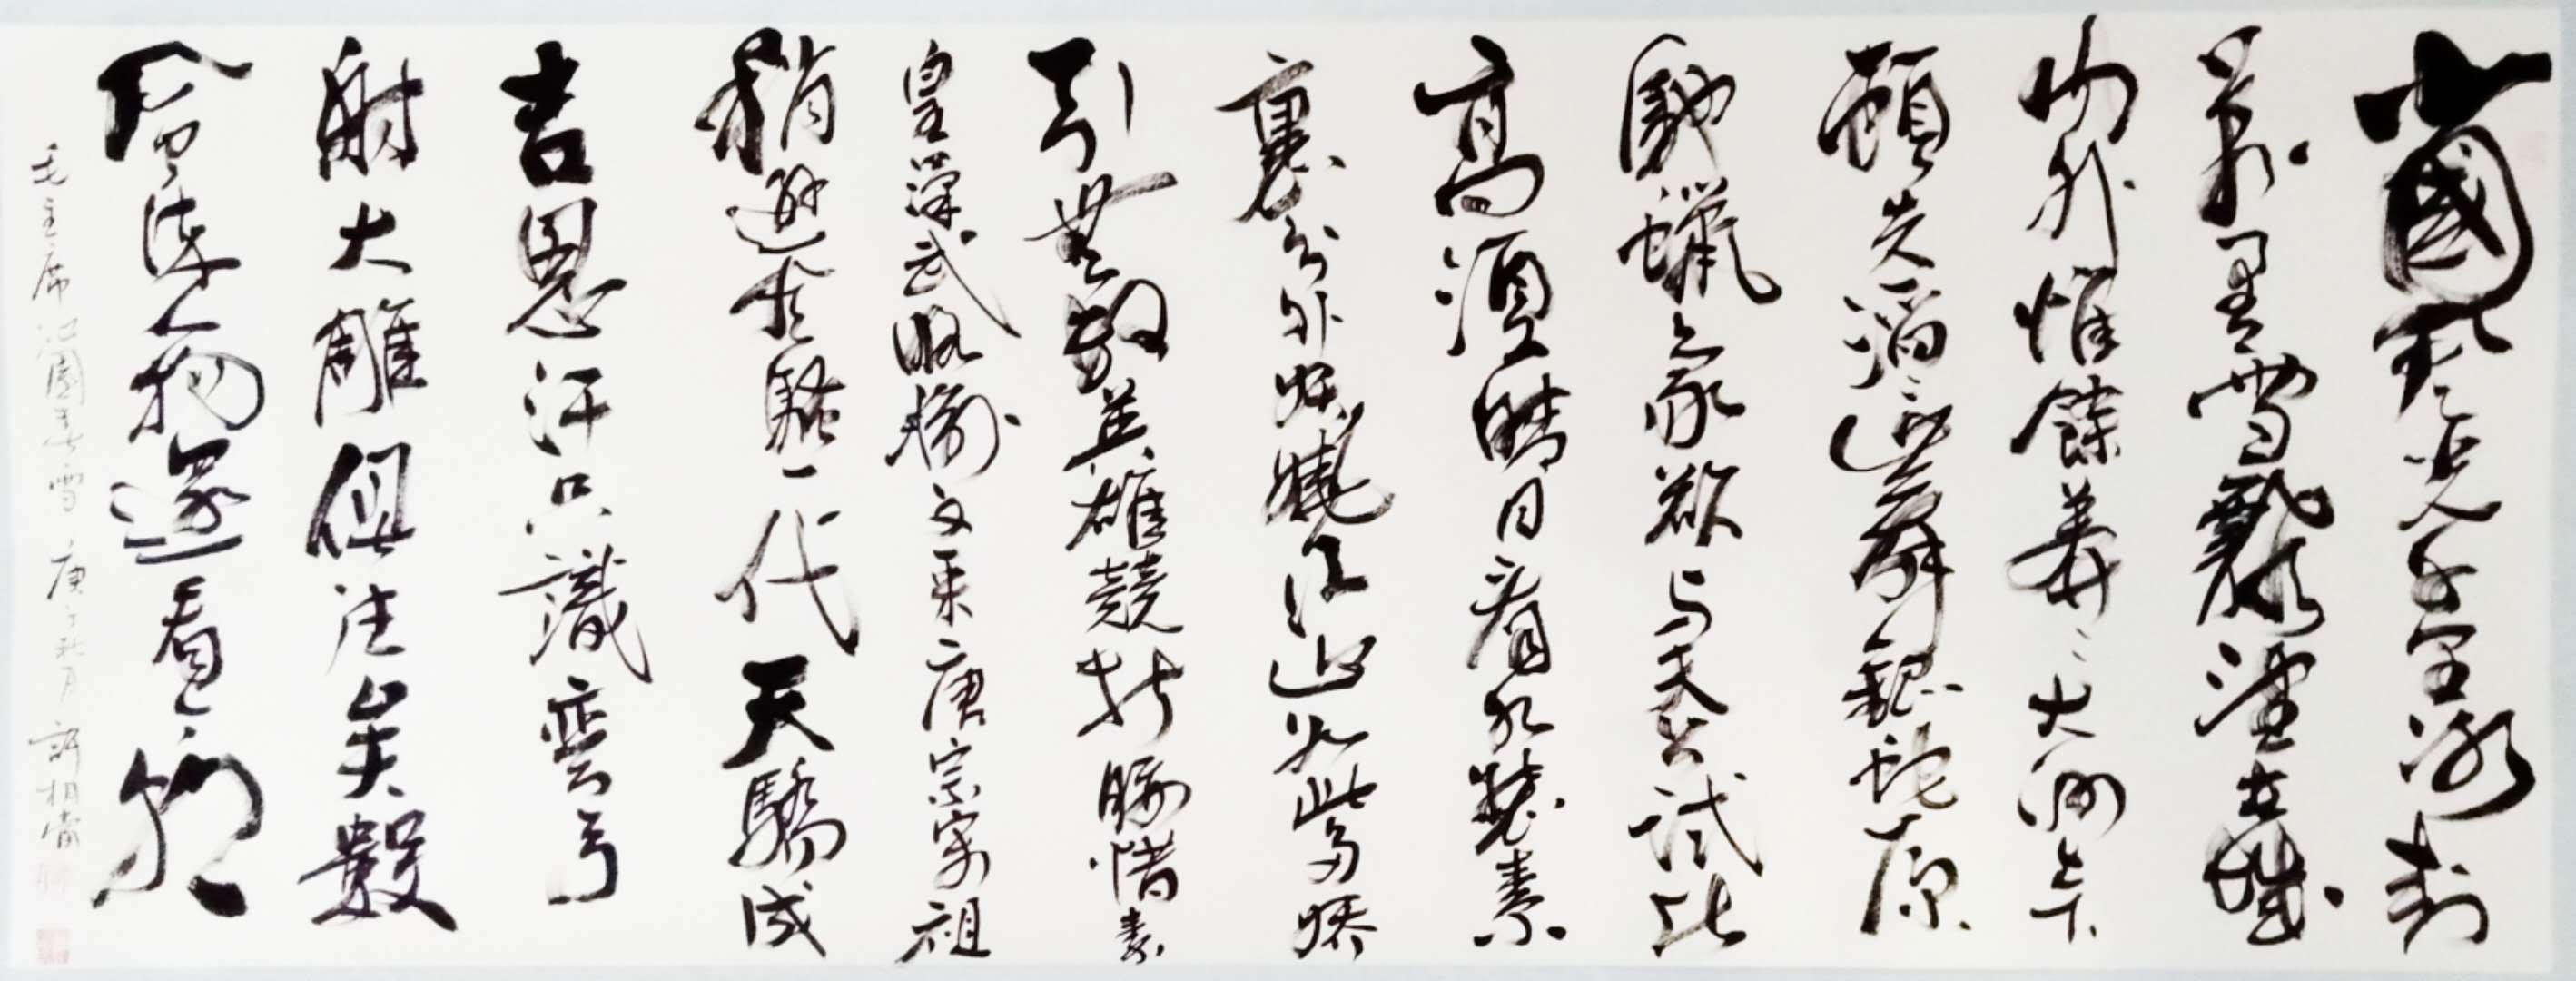 北國風光千里冰封
萬里雪飄望長城
內外惟餘莽〻大河上下
頓失滔〻山舞銀蛇原
馳蠟象欲与天公試比
高須晴日看紅裝素
裹分外妖嬈江山如此多嬌
引無數英雄競折腰惜秦
皇漢武略輸文采唐宗宋祖
稍遜風騷一代天驕成
吉思汗只識彎弓
射大雕俱往矣數
風流人物還看今朝
毛主席沁園春雪 庚子秋月